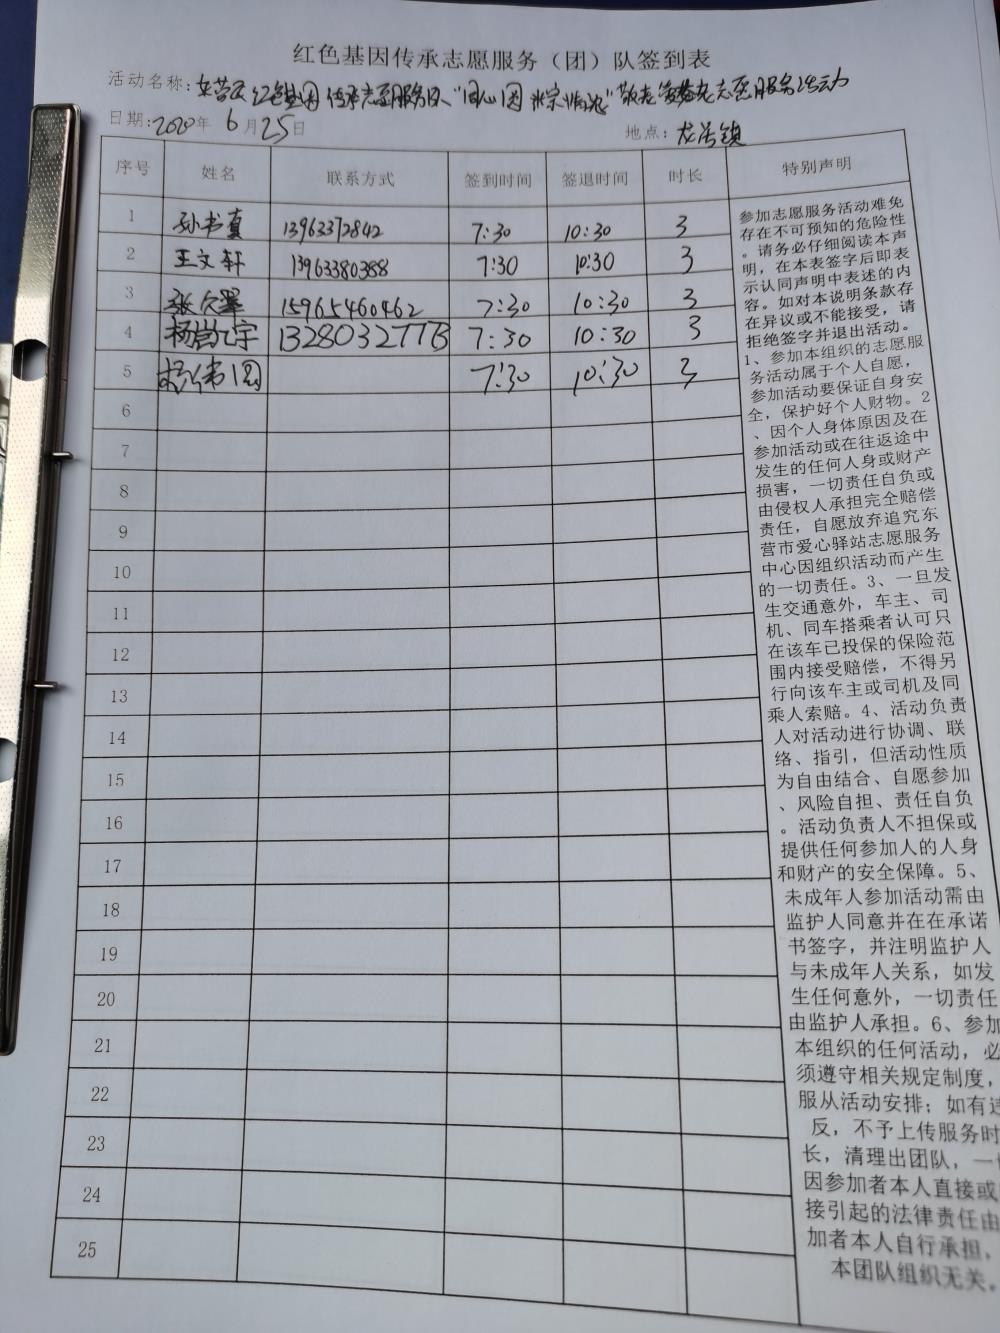 红色基因传承志愿服务（团）队签到表
活动名称：东营区红色基因传承志愿服务队"同心圆 敬老爱老志愿服务活动
日期：2020年6月25日 地点：龙居镇
序号 姓名 联系方式 签到时间 签退时间 时长 特别声明
1 孙书真 13963372842 7:30 10:30 3
2 王文轩 13963380388 7:30 10:30 3
3 张 15965460462 7:30 10:30 3
4 杨 宇 7:30 10:30 3
5 7:30 10:30 3
6
7
8
9
10
11
12
13
14
15
16
17
18
19
20
21
22
23
24
25
参加志愿服务活动难免
存在不可预知的危险性
。请务必仔细阅读本声
明，在本表签字后即表
示认同声明中表述的内
容。如对本说明条款存
在异议或不能接受，请
拒绝签字并退出活动。
1、参加本组织的志愿服
务活动属于个人自愿，
参加活动要保证自身安
全，保护好个人财物。2
、因个人身体原因及在
参加活动或在往返途中
发生的任何人身或财产
损害，一切责任自负或
由侵权人承担完全赔偿
责任，自愿放弃追究东
营市爱心驿站志愿服务
中心因组织活动而产生
的一切责任。3、一旦发
生交通意外，车主、司
机、同车搭乘者认可只
在该车已投保的保险范
围内接受赔偿，不得另
行向该车主或司机及同
乘人索赔。4、活动负责
人对活动进行协调、联
络、指引，但活动性质
为自由结合、自愿参加
、风险自担、责任自负
。活动负责人不担保或
提供任何参加人的人身
和财产的安全保障。5、
未成年人参加活动需由
监护人同意并在在承诺
书签字，并注明监护人
与未成年人关系，如发
生任何意外，一切责任
由监护人承担。6、参加
本组织的任何活动，必
须遵守相关规定制度，
服从活动安排；如有违
反，不予上传服务时
长，清理出团队，一切
因参加者本人直接或
接引起的法律责任由
加者本人自行承担，
本团队组织无关。